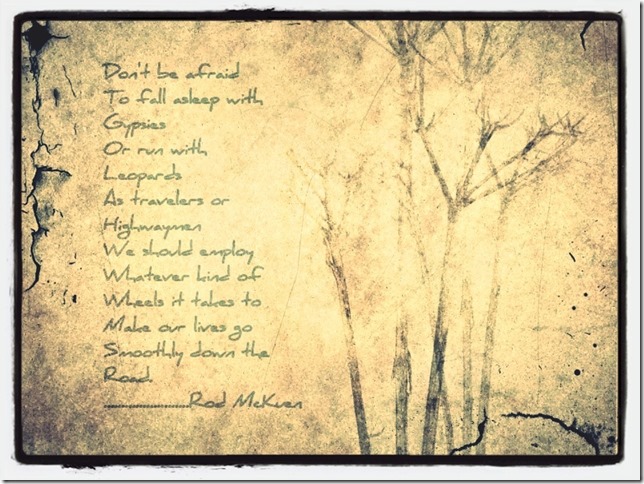 Don't be afraid
To fall asleep with
Gypsies
Or run with
Leopards
As travelers or
Highwaymen
We should employ
Whatever kind of
Wheels it takes to
Make our lives go
Smoothly down the
Road.
.......................Rod McKuen